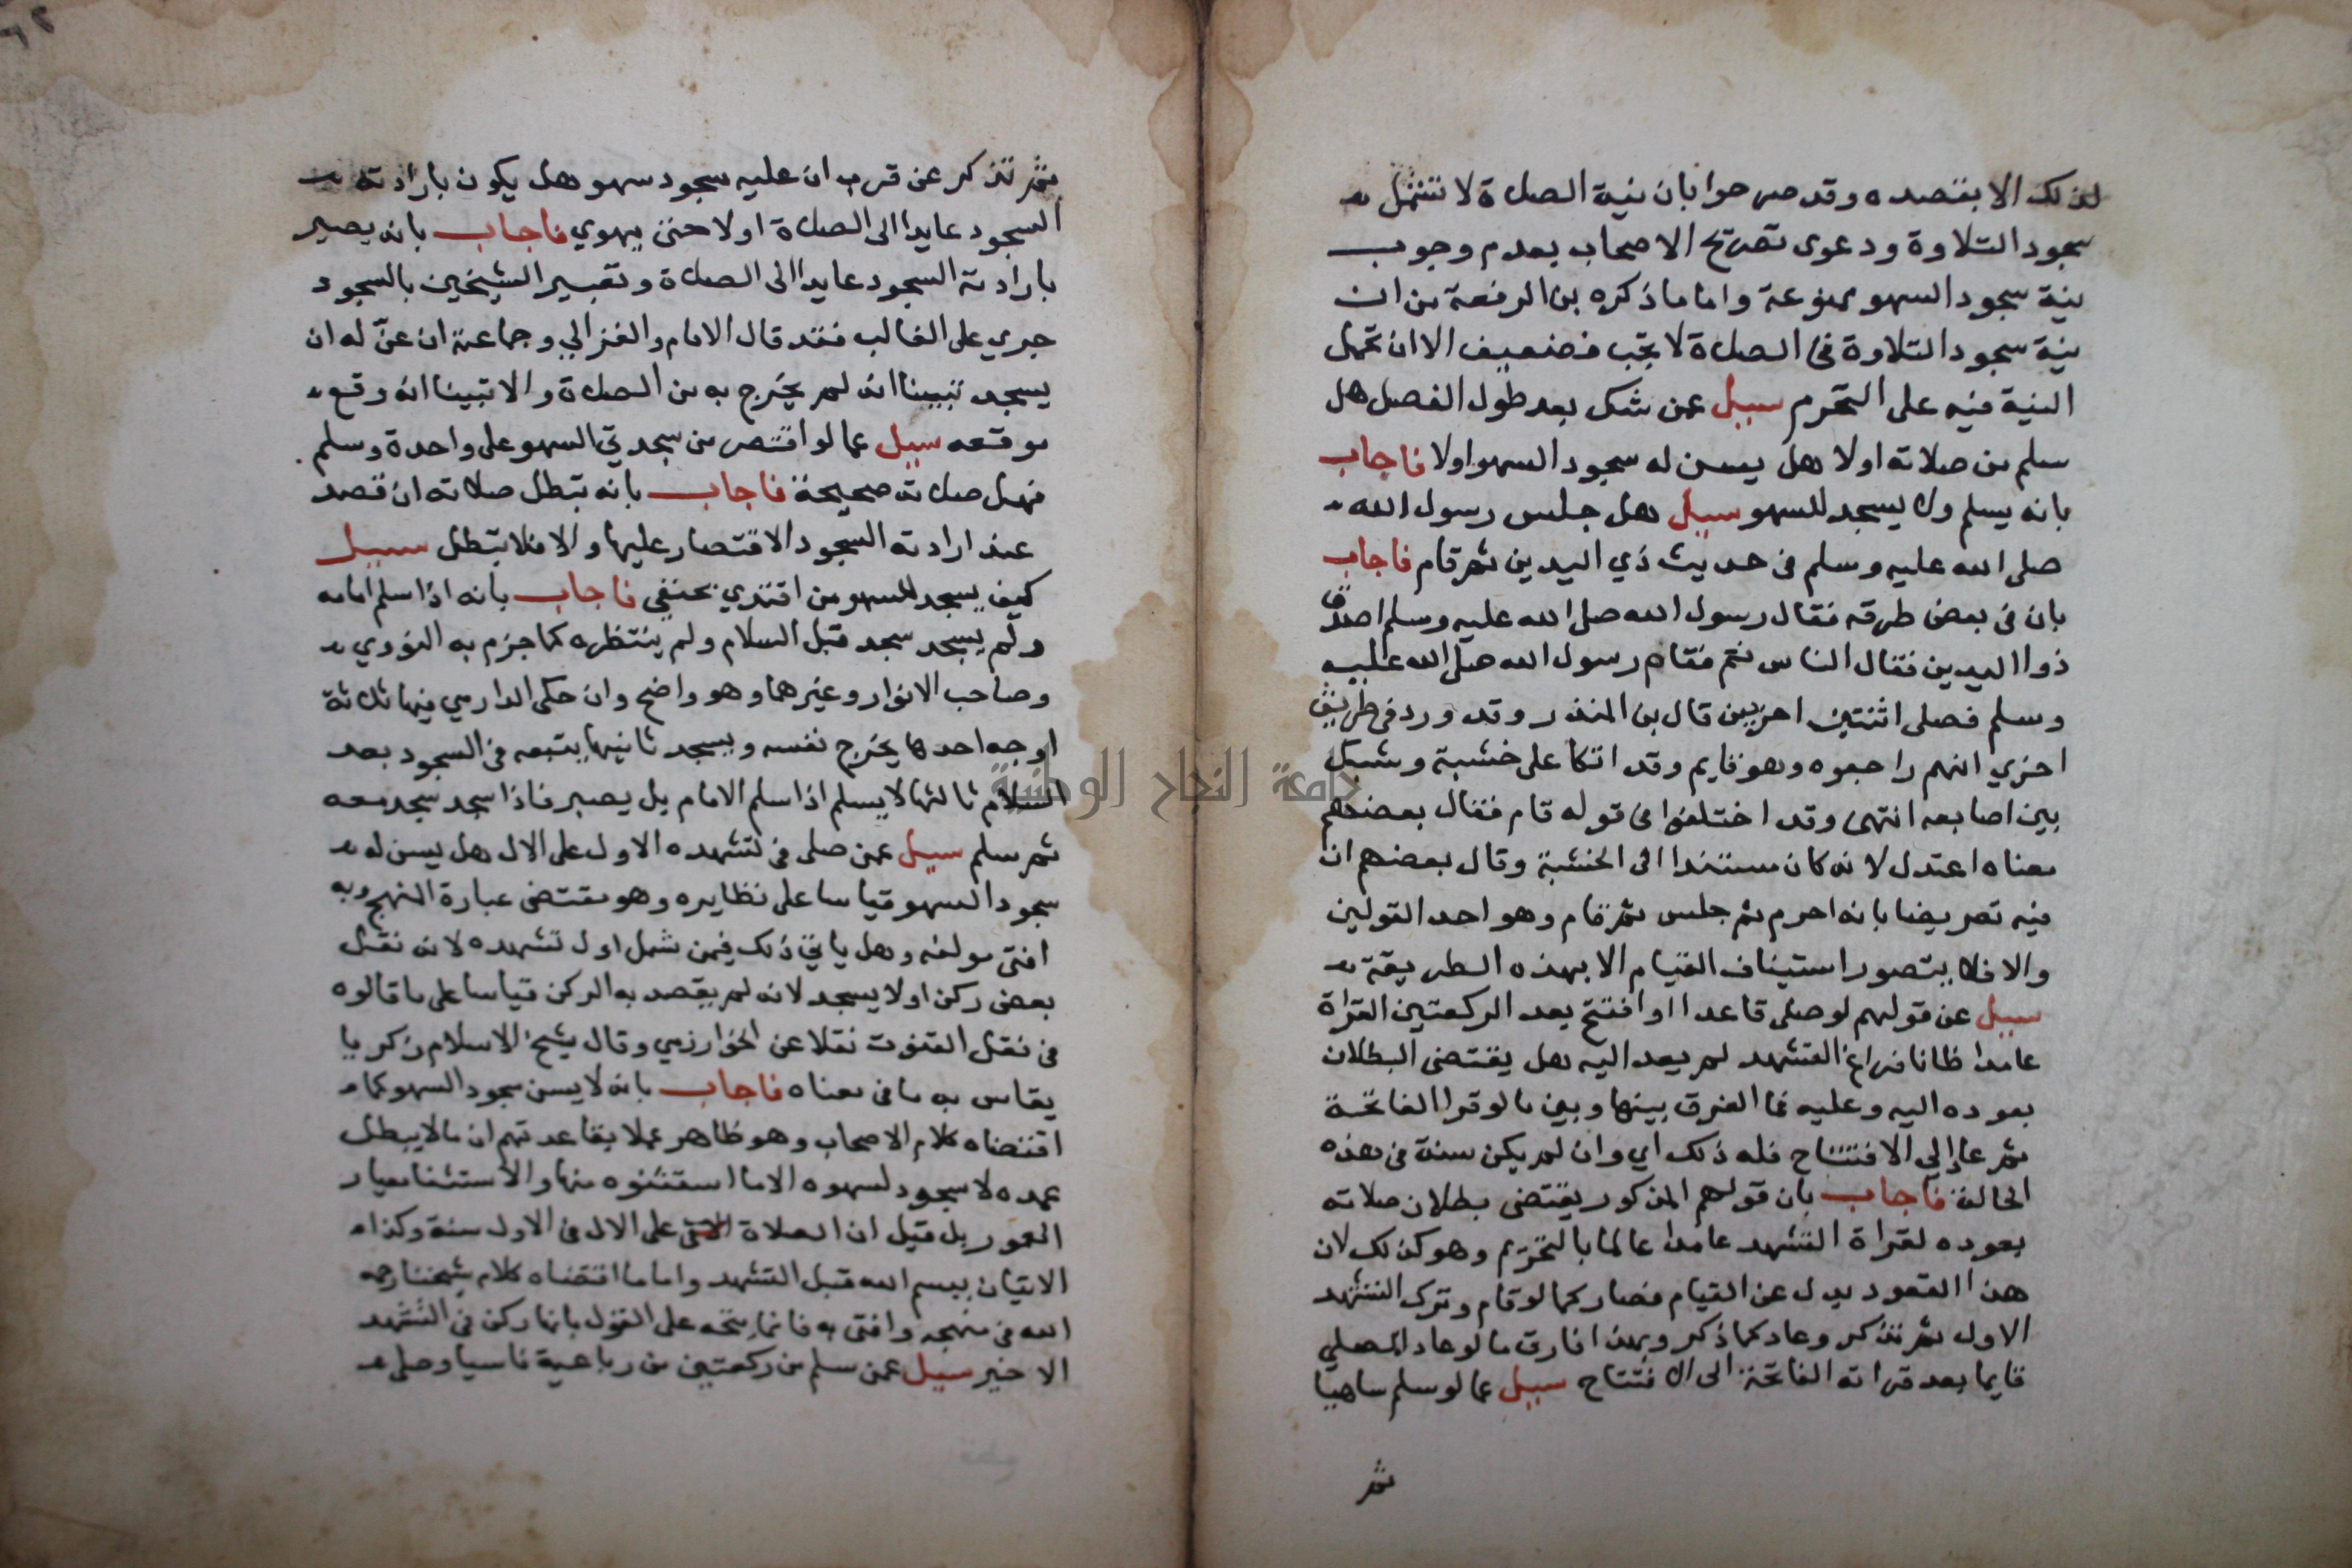 لذلك الا بقصده وقد صرحوا بان نية الصلاة لا تشمل
سجود التلاوة ودعوى تصريح الاصحاب بعدم وجوب
نية سجود السهو ممنوعة واما ما ذكره بن الرفعة من ان
نية سجود التلاوة في الصلاة لا تجب فضعيف الا ان تحمل
النية فيه على التحرم سيل عمن شك بعد طول الفصل هل
سلم من صلاته اولا هل يسن له سجود السهو اولا فاجاب
بانه يسلم ولا يسجد للسهو سيل هل جلس رسول الله
صلى الله عليه وسلم في حديث ذي اليدين ثم قام فاجاب
بان في بعض طرقه فقال رسول الله صلى الله عليه وسلم اصدق
ذوا اليدين فقال الناس نعم فقام رسول الله صلى الله عليه
وسلم فصلى اثنتين اخريين قال بن المنذر وقد ورد في طريق
اخري انهم راجعوه وهو قايم وقد اتكا على خشبة وشبك
بين اصابعه انتهى وقد اختلفوا في قوله قام فقال بعضهم
معناه اعتدل لانه كان مستندا الى الخشبة وقال بعضهم ان
فيه تعريضا بانه احرم ثم جلس ثم قام وهو احد القولين
والا فلا يتصور استيناف القيام الا بهذه الطريقة
سيل عن قولهم لو صلى قاعدا او افتتح بعد الركعتين القراة
عامدا ظانا فراغ التشهد لم يعد اليه هل يقتضى البطلان
بعوده اليه وعليه فما الفرق بينها وبين ما لو قرا الفاتحة
ثم عاد الي الافتتاح فله ذلك اي وان لم يكن سنة في هذه
الحالة فاجاب بان قولهم المذكور يقتضى بطلان صلاته
بعوده لقراة التشهد عامدا عالما بالتحريم وهو كذلك لان
هذا القعود بدل عن القيام فصار كما لو قام وترك التشهد
الاول ثم تذكر وعاد كما ذكر وبهذا فارق ما لو عاد المصلي
قايما بعد قراته الفاتحة الى الافتتاح سيل عما لو سلم ساهيا
ثم
ثم تذكر عن قرب ان عليه سجود سهو هل يكون بارادته
السجود عايدا الى الصلاة اولا حتى يهوي فاجاب بانه يصير
بارادته السجود عايدا الى الصلاة وتعبير الشيخين بالسجود
جري على الغالب فقد قال الامام والغزالي وجماعة ان عنّ له ان
يسجد تبينا انه لم يخرج به من الصلاة والا تبينا انه وقع
موقعه سيل عما لو اقتصر من سجدتي السهو على واحدة وسلم
فهل صلاته صحيحة فاجاب بانه تبطل صلاته ان قصد
عند ارادته السجود الاقتصار عليها والا فلا تبطل سيل
كيف يسجد للسهو من اقتدي بحنفي فاجاب بانه اذا سلم امامه
ولم يسجد سجد قبل السلام ولم ينتظره كما جزم به النووي
وصاحب الانوار وغيرهما وهو واضح وان حكى الدارمي فيها ثلاثة
اوجه احدها يخرج نفسه ويسجد ثانيها يتبعه في السجود بعد
السلام ثالثها لا يسلم اذا سلم الامام بل يصبر فاذا سجد سجد معه
ثم سلم سيل عمن صلى في تشهده الاول على الال هل يسن له
سجود السهو قياسا على نظايره وهو مقتضى عبارة المنهج وبه
افتى مولفه وهل ياتي ذلك فيمن شمل اول تشهده لانه نقل
بعض ركن اولا يسجد لانه لم يقصد به الركن قياسا على ما قالوه
في نقل القنوت نقلا عن الخوارزمي وقال شيخ الاسلام زكريا
يقاس به ما في معناه فاجاب بانه لا يسن سجود السهو كما
اقتضاه كلام الاصحاب وهو ظاهر عملا بقاعدتهم ان ما لا يبطل
عمده لا سجود لسهوه الا ما استثنوه منها والاستثنا معيار
العموم بل قيل ان الصلاة على الال في الاول سنة وكذا
الاتيان ببسم الله قبل التشهد واما ما اقتضاه كلام شيخنا رحمه
الله في منهجه وافتى به فانما يتجه على القول بانها ركن في التشهد
الاخير سيل عمن سلم من ركعتين من رباعية ناسيا وصلى
جامعة النجاح الوطنية